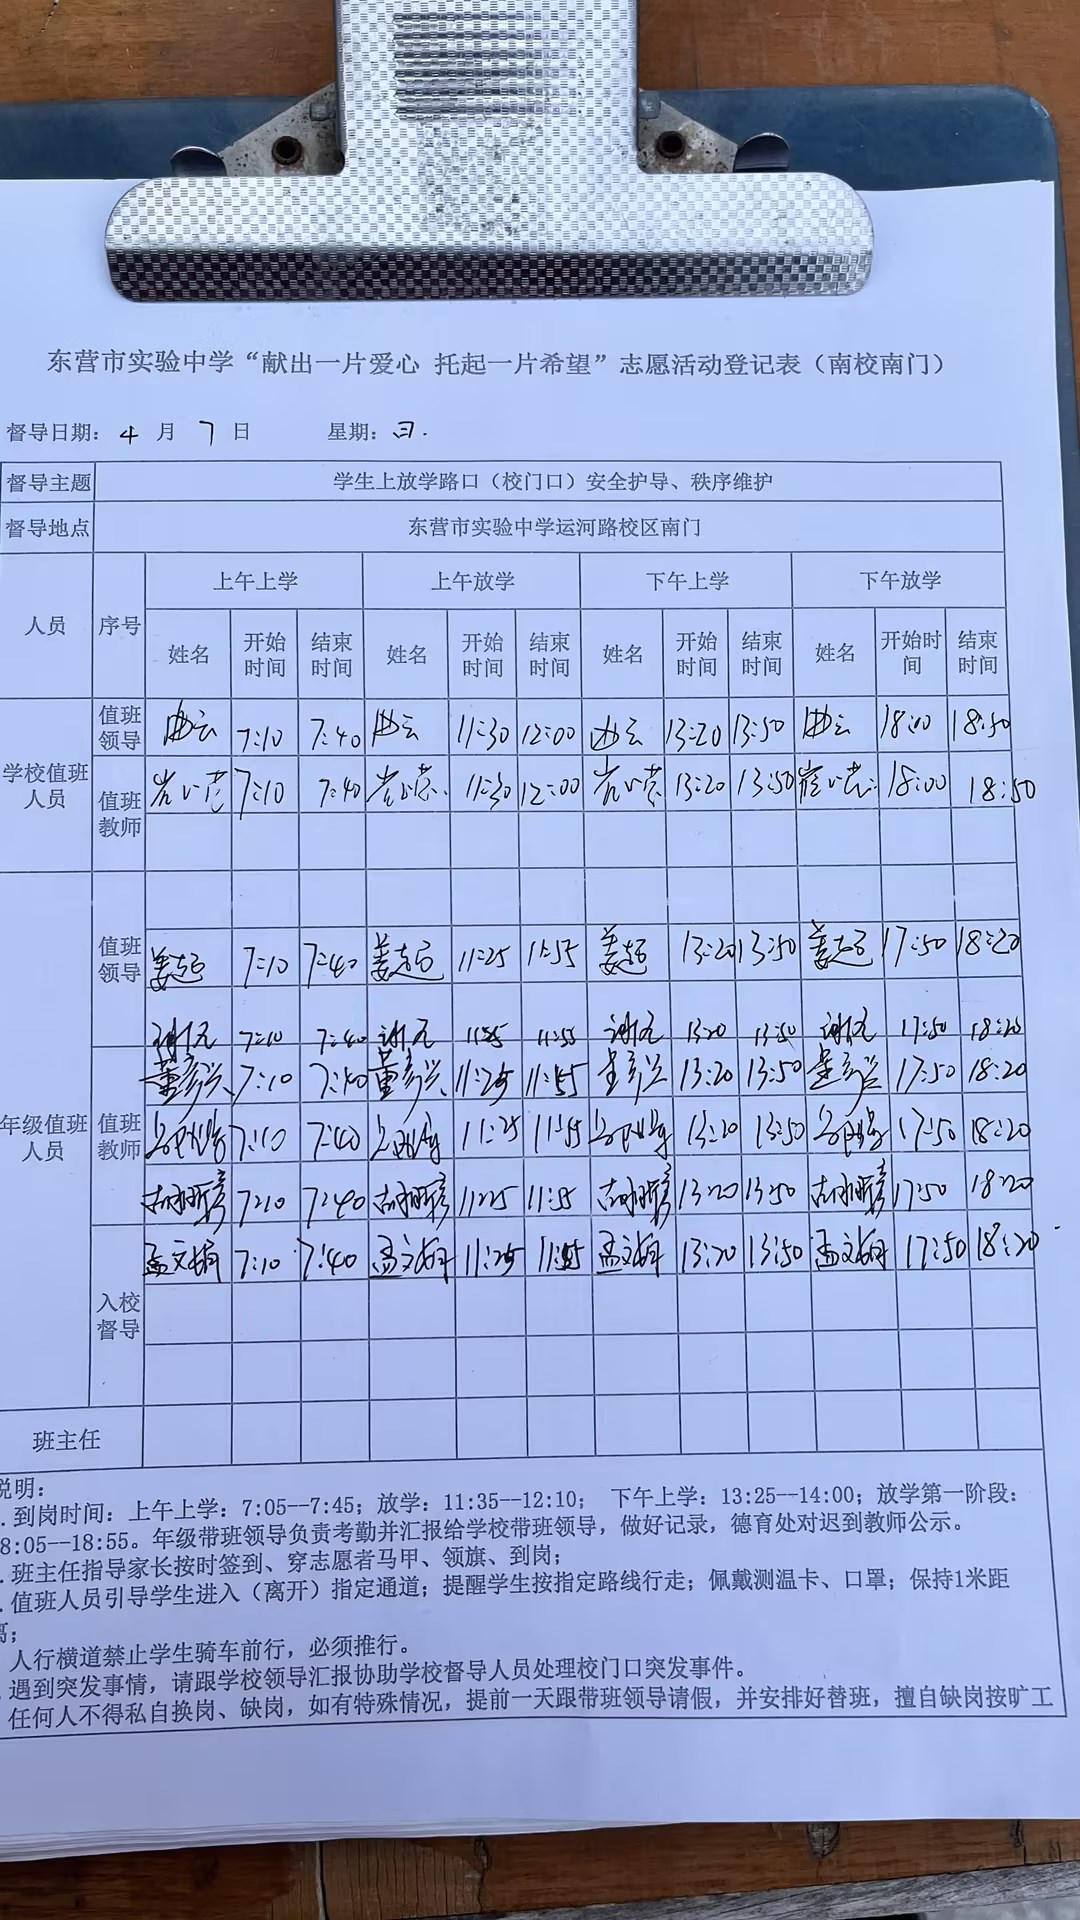 东营市实验中学“献出一片爱心 托起一片希望”志愿活动登记表（南校南门）
督导日期：4 月 7 日 星期：日.
督导主题 学生上放学路口（校门口）安全护导、秩序维护
督导地点 东营市实验中学运河路校区南门
人员 序号 上午上学 上午放学 下午上学 下午放学
姓名 开始时间 结束时间 姓名 开始时间 结束时间 姓名 开始时间 结束时间 姓名 开始时间 结束时间
学校值班人员 值班领导 曲云 7:10 7:40 曲云 11:30 12:00 曲云 13:20 13:50 曲云 18:00 18:50
值班教师 7:10 7:40 11:30 12:00 13:20 13:50 18:00 18:50
年级值班人员 值班领导 姜超 7:10 7:40 姜超 11:25 11:55 姜超 13:20 13:50 姜超 17:50 18:20
7:10 7:40 11:25 11:55 13:20 13:50 17:50 18:20
值班教师 董彦兴 7:10 7:40 董彦兴 11:25 11:55 董彦兴 13:20 13:50 董彦兴 17:50 18:20
7:10 7:40 11:25 11:55 13:20 13:50 17:50 18:20
7:10 7:40 11:25 11:55 13:20 13:50 17:50 18:20
入校督导 孟文娟 7:10 7:40 孟文娟 11:25 11:55 孟文娟 13:20 13:50 孟文娟 17:50 18:20
班主任
说明：
. 到岗时间：上午上学：7:05--7:45；放学：11:35--12:10； 下午上学：13:25--14:00；放学第一阶段：
8:05--18:55。年级带班领导负责考勤并汇报给学校带班领导，做好记录，德育处对迟到教师公示。
. 班主任指导家长按时签到、穿志愿者马甲、领旗、到岗；
. 值班人员引导学生进入（离开）指定通道；提醒学生按指定路线行走；佩戴测温卡、口罩；保持1米距
离；
人行横道禁止学生骑车前行，必须推行。
遇到突发事情，请跟学校领导汇报协助学校督导人员处理校门口突发事件。
任何人不得私自换岗、缺岗，如有特殊情况，提前一天跟带班领导请假，并安排好替班，擅自缺岗按旷工